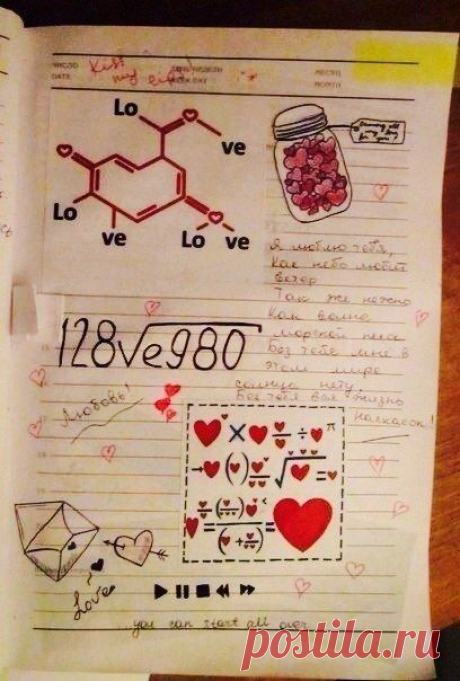 ЧИСЛО
DATE
ДЕНЬ НЕДЕЛИ
WEEK DAY
МЕСЯЦ
MONTH
Kiss
my
Lo
ve
Lo
ve
Lo ve
Я люблю тебя,
Как небо любит
ветер
Так же нежно
Как волна
морской песок
Без тебя мне в
этом мире
солнца нету,
Без тебя вся жизнь
128√e980
Любовь!
π
Love
...you can start all over...
postila.ru